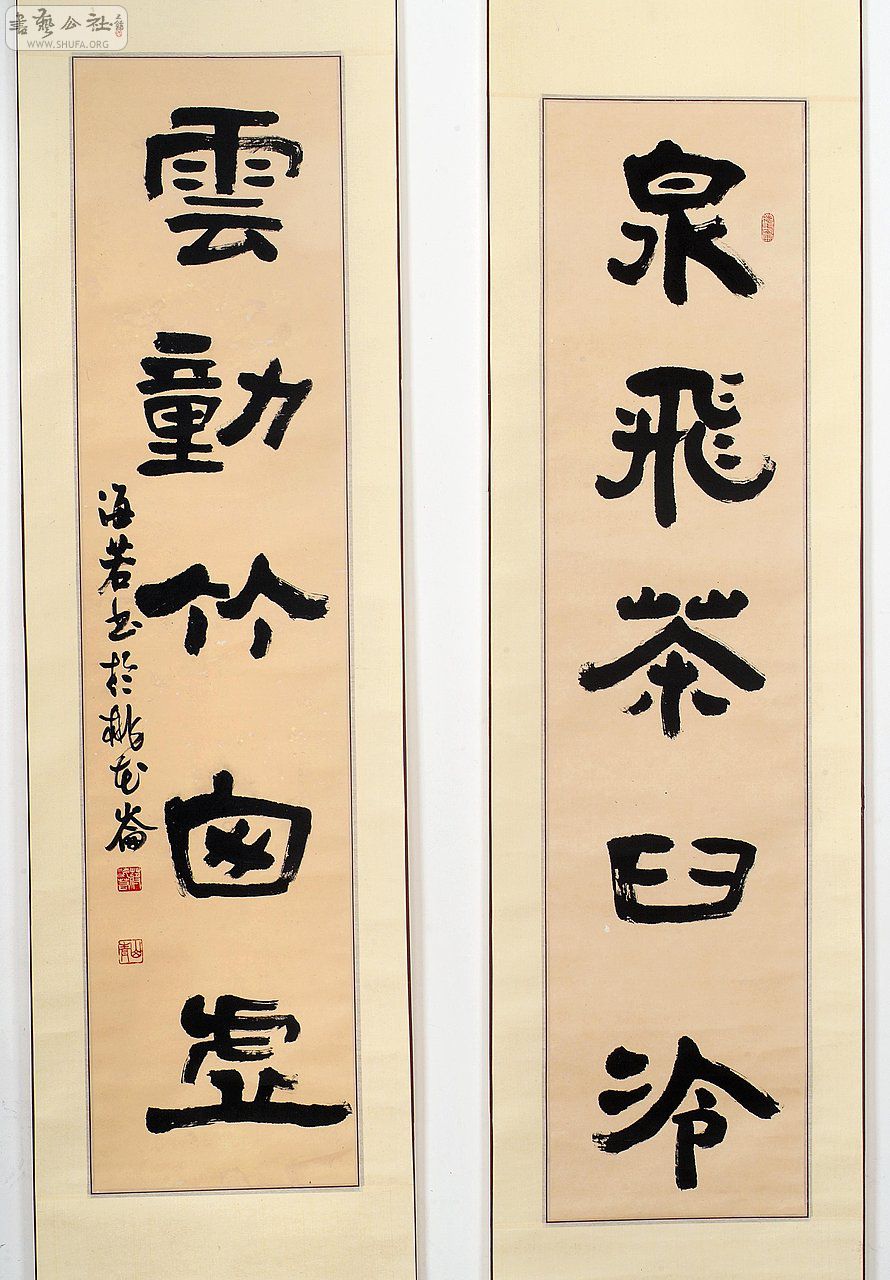 泉飛茶臼冷
雲動竹囱虛
海若书於桃花崙
書藝公社
WWW.SHUFA.ORG